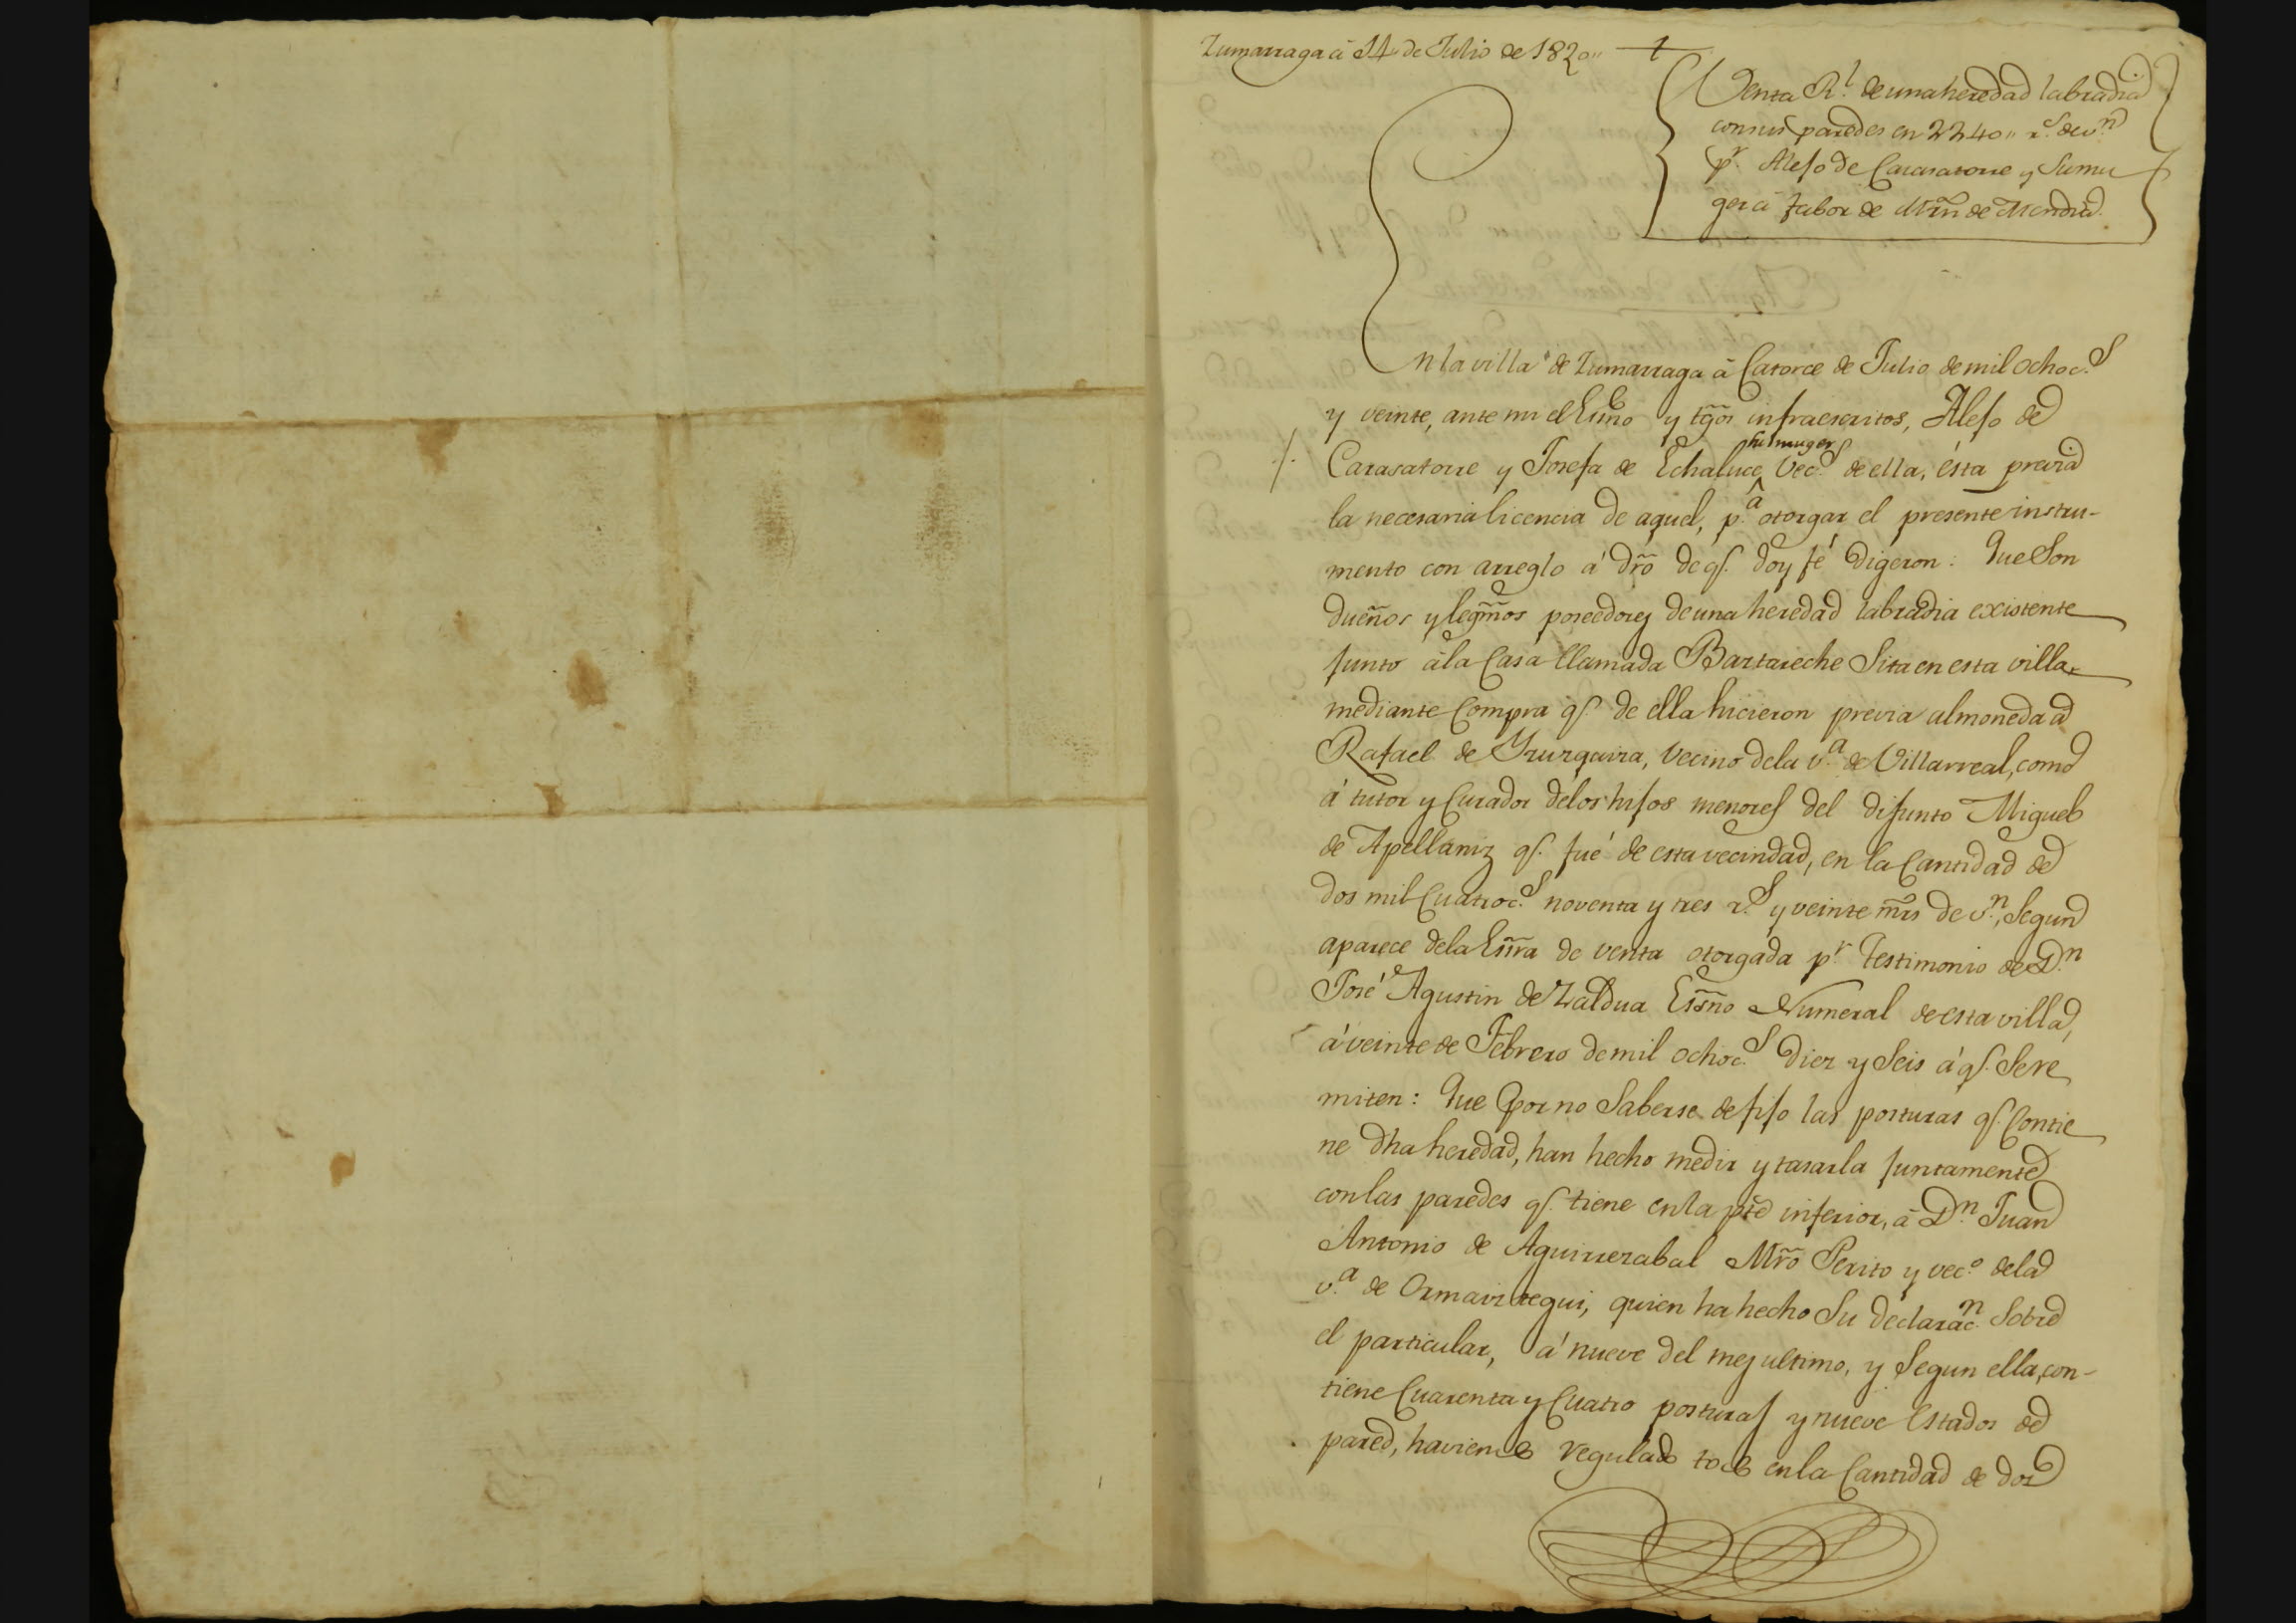 Zumarraga á 14 de Julio de 1820,,
Venta Rl. de una heredad labradia
con sus paredes en 2240,, rs. de vn.
pr. Alejo de Carasatorre y Su mu
ger á fabor de Mrñ de Mendia.
En la villa de Zumarraga á Catorce de Julio de mil ochocs.
y veinte, ante mi el Essno y tgõs infraescritos, Alejo de
Carasatorre y Josefa de Echaluce su muger Vecs. de ella, ésta previa
la necesaria licencia de aquel, pa. otorgar el presente instru-
mento con arreglo á dr̃o de q. doy fé Digeron: Que Son
dueños y legm̃os poseedores de una heredad labradia existente
junto á la Casa llamada Bartareche Sita en esta villa,
mediante Compra q. de ella hicieron previa almoneda á
Rafael de Yrurgaira, Vecino de la va. de Villarreal, como
á tutor y Curador de los hijos menores del difunto Miguel
de Apellaniz q. fué de esta vecindad, en la Cantidad de
dos mil Cuatrocs. noventa y tres rs. y veinte mr̃s de vn., Segun
aparece de la Essra de venta otorgada pr. testimonio de Dn.
José Agustin de Zaldua Essno Numeral de esta villa,
á veinte de Febrero de mil ochocs. Diez y Seis á q. Se re
miten: Que por no Saberse de fijo las posturas q. Contie
ne dha heredad, han hecho medir y tasarla juntamente
con las paredes q. tiene en la pte inferior, á Dn. Juan
Antonio de Aguirrezabal Mr̃o Perito y veco. de la
va. de Ormaiztegui, quien ha hecho Su declaracn. Sobre
el particular, á nueve del mes ultimo, y Segun ella, con-
tiene Cuarenta y Cuatro posturas y nueve Estados de
pared, haviendo regulado todo en la Cantidad de dos